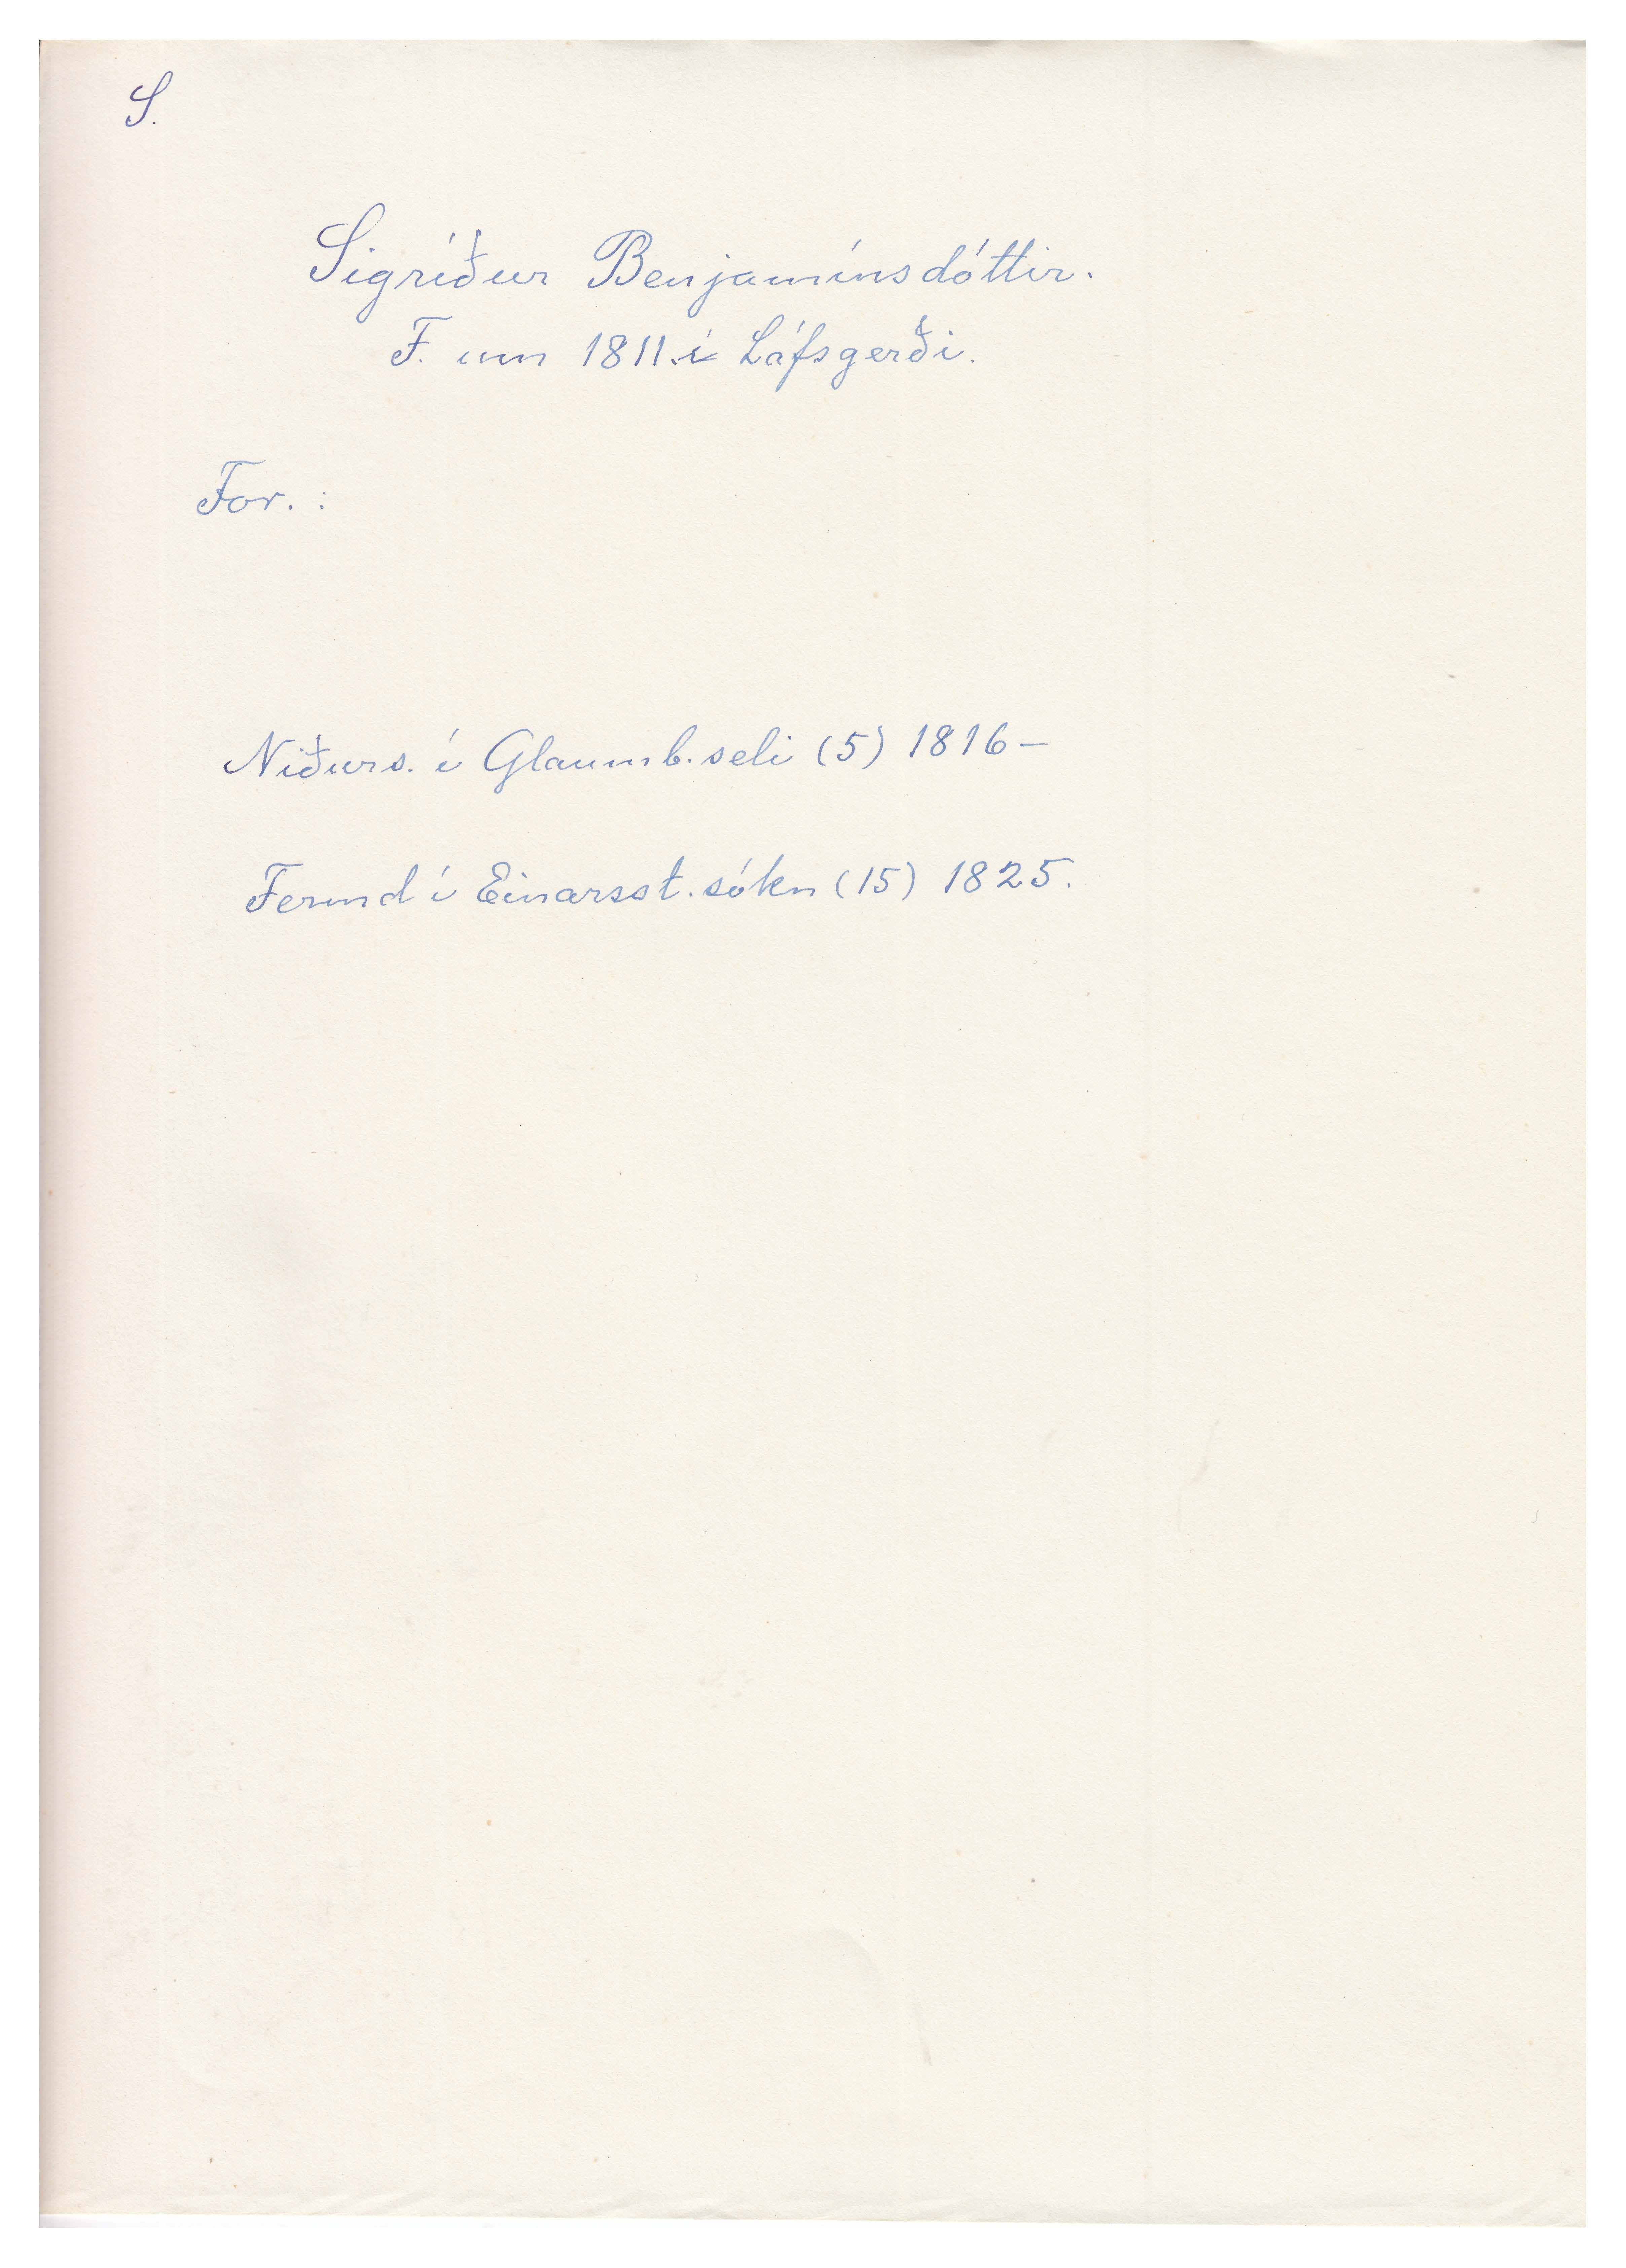 S.
Sigríður Benjamínsdóttir.
F. um 1811 í Láfsgerði.
For. :
Niðurs. í Glaumb.seli (5) 1816 –
Fermd í Einarsst.sókn (15) 1825.